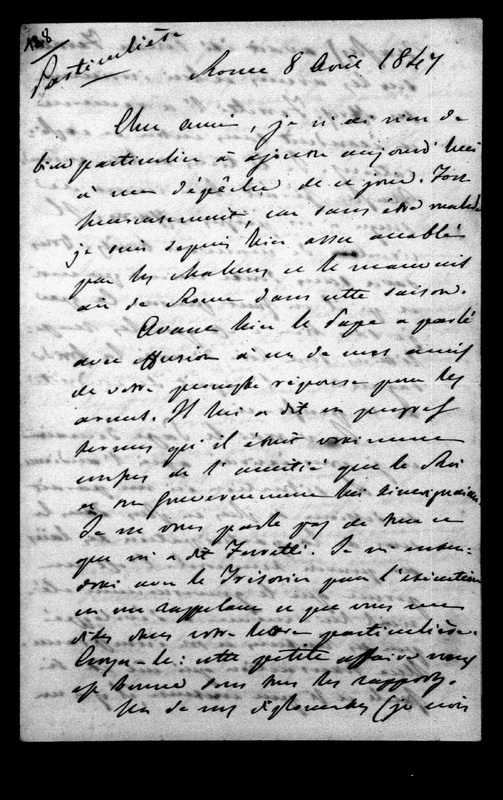 128
Particulière
Rome 8 Août 1847
Cher ami, je n'ai rien de
bien particulier à ajouter aujourd'hui
à ma dépêche de ce jour. Fort
heureusement, car sans être malade
je suis depuis hier assez accablé
par les chaleurs et le mauvais
air de Rome dans cette saison.
Avant hier le Pape a parlé
avec effusion à un de mes amis
de votre prompte réponse pour les
armes. Il lui a dit en propres
termes qu'il était vraiment
confus de l'amitié que le Roi
et son gouvernement lui témoignaient.
Je ne vous parle pas de tout ce
que m'a dit Ferretti. Je m'enten-
drai avec le Trésorier pour l'exécution
en me rappelant ce que vous me
dites dans votre lettre particulière.
Croyez-le: cette petite affaire nous
est bonne sous tous les rapports.
Un de mes diplomates (je crois